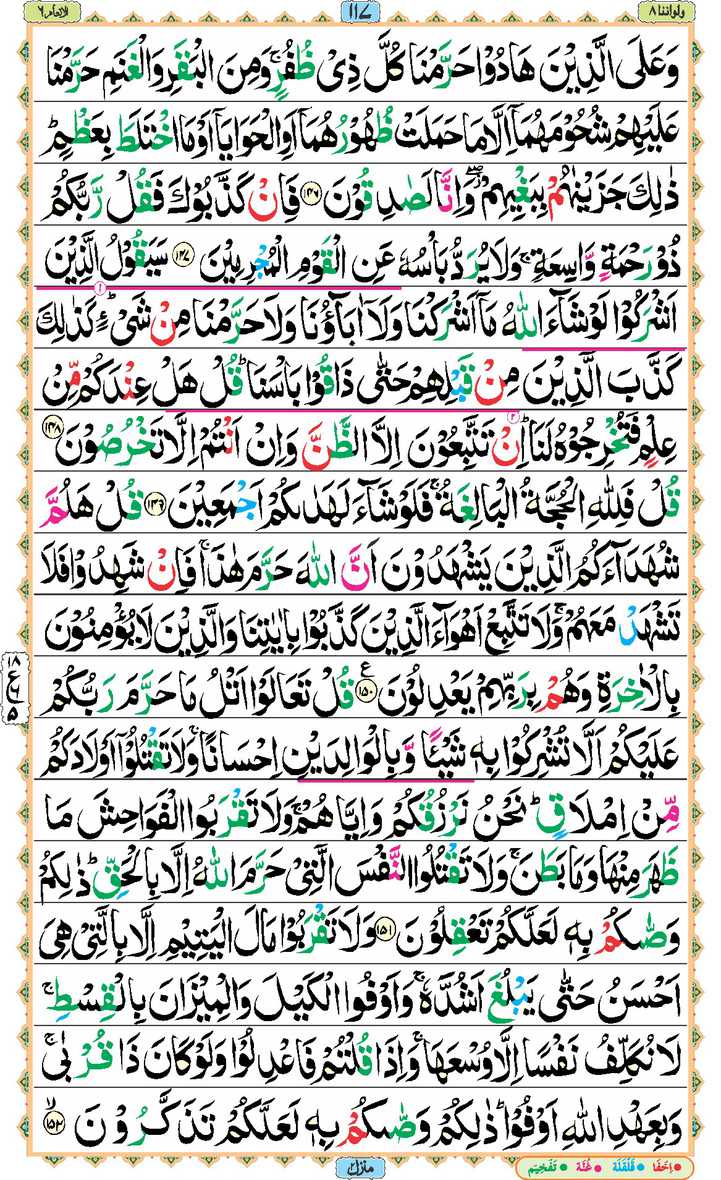 ولواننا ۸
۱۱۷
الانعام ۶
وَعَلَى الَّذِيْنَ هَادُوْا حَرَّمْنَا كُلَّ ذِىْ ظُفُرٍ ۚ وَمِنَ الْبَقَرِ وَالْغَنَمِ حَرَّمْنَا
عَلَيْهِمْ شُحُوْمَهُمَاۤ اِلَّا مَا حَمَلَتْ ظُهُوْرُهُمَاۤ اَوِ الْحَوَايَاۤ اَوْ مَا اخْتَلَطَ بِعَظْمٍ ؕ
ذٰلِكَ جَزَيْنٰهُمْ بِبَغْيِهِمْ ۖ وَاِنَّا لَصٰدِقُوْنَ ﴿۱۴۶﴾ فَاِنْ كَذَّبُوْكَ فَقُلْ رَّبُّكُمْ
ذُوْ رَحْمَةٍ وَّاسِعَةٍ ۚ وَلَا يُرَدُّ بَاْسُهٗ عَنِ الْقَوْمِ الْمُجْرِمِيْنَ ﴿۱۴۷﴾ سَيَقُوْلُ الَّذِيْنَ
اَشْرَكُوْا لَوْ شَآءَ اللّٰهُ مَاۤ اَشْرَكْنَا وَلَاۤ اٰبَآؤُنَا وَلَا حَرَّمْنَا مِنْ شَىْءٍ ؕ كَذٰلِكَ
كَذَّبَ الَّذِيْنَ مِنْ قَبْلِهِمْ حَتّٰى ذَاقُوْا بَاْسَنَا ؕ قُلْ هَلْ عِنْدَكُمْ مِّنْ
عِلْمٍ فَتُخْرِجُوْهُ لَنَا ؕ اِنْ تَتَّبِعُوْنَ اِلَّا الظَّنَّ وَاِنْ اَنْتُمْ اِلَّا تَخْرُصُوْنَ ﴿۱۴۸﴾
قُلْ فَلِلّٰهِ الْحُجَّةُ الْبَالِغَةُ ۚ فَلَوْ شَآءَ لَهَدٰىكُمْ اَجْمَعِيْنَ ﴿۱۴۹﴾ قُلْ هَلُمَّ
شُهَدَآءَكُمُ الَّذِيْنَ يَشْهَدُوْنَ اَنَّ اللّٰهَ حَرَّمَ هٰذَا ۚ فَاِنْ شَهِدُوْا فَلَا
تَشْهَدْ مَعَهُمْ ۚ وَلَا تَتَّبِعْ اَهْوَآءَ الَّذِيْنَ كَذَّبُوْا بِاٰيٰتِنَا وَالَّذِيْنَ لَا يُؤْمِنُوْنَ
بِالْاٰخِرَةِ وَهُمْ بِرَبِّهِمْ يَعْدِلُوْنَ ﴿۱۵۰﴾ ع قُلْ تَعَالَوْا اَتْلُ مَا حَرَّمَ رَبُّكُمْ
عَلَيْكُمْ اَلَّا تُشْرِكُوْا بِهٖ شَيْـًٔا وَّبِالْوَالِدَيْنِ اِحْسَانًا ۚ وَلَا تَقْتُلُوْۤا اَوْلَادَكُمْ
مِّنْ اِمْلَاقٍ ؕ نَحْنُ نَرْزُقُكُمْ وَاِيَّاهُمْ ۚ وَلَا تَقْرَبُوا الْفَوَاحِشَ مَا
ظَهَرَ مِنْهَا وَمَا بَطَنَ ۚ وَلَا تَقْتُلُوا النَّفْسَ الَّتِىْ حَرَّمَ اللّٰهُ اِلَّا بِالْحَقِّ ؕ ذٰلِكُمْ
وَصّٰىكُمْ بِهٖ لَعَلَّكُمْ تَعْقِلُوْنَ ﴿۱۵۱﴾ وَلَا تَقْرَبُوْا مَالَ الْيَتِيْمِ اِلَّا بِالَّتِىْ هِىَ
اَحْسَنُ حَتّٰى يَبْلُغَ اَشُدَّهٗ ۚ وَاَوْفُوا الْكَيْلَ وَالْمِيْزَانَ بِالْقِسْطِ ۚ
لَا نُكَلِّفُ نَفْسًا اِلَّا وُسْعَهَا ۚ وَاِذَا قُلْتُمْ فَاعْدِلُوْا وَلَوْ كَانَ ذَا قُرْبٰى ۚ
وَبِعَهْدِ اللّٰهِ اَوْفُوْا ؕ ذٰلِكُمْ وَصّٰىكُمْ بِهٖ لَعَلَّكُمْ تَذَكَّرُوْنَ ﴿۱۵۲﴾ ۙ
۱۸
ع
۶
۵
منزل ۲
اِخْفَا قَلْقَلَه غُنَّه تَفْخِيْم